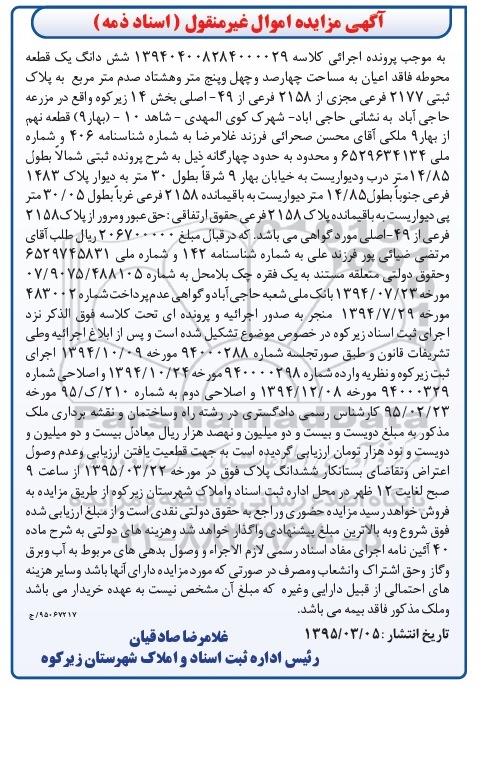 آگهی مزایده اموال غیرمنقول (اسناد ذمه)
به موجب پرونده اجرائی کلاسه ۱۳۹۴۰۴۰۰۸۲۸۴۰۰۰۰۲۹ شش دانگ یک قطعه
محوطه فاقد اعیان به مساحت چهارصد وچهل وپنج متر وهشتاد صدم متر مربع به پلاک
ثبتی ۲۱۷۷ فرعی مجزی از ۲۱۵۸ فرعی از ۴۹-اصلی بخش ۱۴ زیرکوه واقع در مزرعه
حاجی آباد به نشانی حاجی اباد- شهرک کوی المهدی - شاهد ۱۰ - (بهار۹) قطعه نهم
از بهار۹ ملکی آقای محسن صحرائی فرزند غلامرضا به شماره شناسنامه ۴۰۶ و شماره
ملی ۶۵۲۹۶۳۴۱۳۴ و محدود به حدود چهارگانه ذیل به شرح پرونده ثبتی شمالاً بطول
۱۴/۸۵متر درب ودیواریست به خیابان بهار ۹ شرقاً بطول ۳۰ متر به دیوار پلاک ۱۴۸۳
فرعی جنوباً بطول۱۴/۸۵ متر دیواریست به باقیمانده ۲۱۵۸ فرعی غرباً بطول ۳۰/۰۵متر
پی دیواریست به باقیمانده پلاک ۲۱۵۸فرعی حقوق ارتفاقی :حق عبور ومرور از پلاک۲۱۵۸
فرعی از ۴۹-اصلی مورد گواهی می باشد. که در قبال مبلغ ۲۰۶۷۰۰۰۰۰ ریال طلب آقای
مرتضی ضیائی پور فرزند علی به شماره شناسنامه ۱۴۲ و شماره ملی ۶۵۲۹۷۴۵۸۳۱
وحقوق دولتی متعلقه مستند به یک فقره چک بلامحل به شماره ۰۷/۹۰۷۵/۴۸۸۱۰۵
مورخه ۱۳۹۴/۰۷/۲۷ بانک ملی شعبه حاجی آباد و گواهی عدم پرداخت شماره ۴۸۳۰۰۲
مورخه ۱۳۹۴/۷/۲۹ منجر به صدور اجرائیه و پرونده ای تحت کلاسه فوق الذکر نزد
اجرای ثبت اسناد زیرکوه در خصوص موضوع تشکیل شده است و پس از ابلاغ اجرائیه وطی
تشریفات قانون و طبق صورتجلسه شماره ۹۴۰۰۰۲۸۸ مورخه ۱۳۹۴/۱۰/۰۹ اجرای
ثبت زیرکوه و نظریه وارده شماره ۹۴۰۰۰۰۲۹۸ مورخه ۱۳۹۴/۱۰/۲۴ و اصلاحی شماره
۹۴۰۰۰۳۲۹ مورخه ۱۳۹۴/۱۲/۰۸ و اصلاحی دوم به شماره ۲۱۰/ک/۹۵ مورخه
۹۵/۰۲/۲۳ کارشناس رسمی دادگستری در رشته راه وساختمان و نقشه برداری ملک
مذکور به مبلغ دویست و بیست و دو میلیون و نهصد هزار ریال معادل بیست و دو میلیون و
دویست و نود هزار تومان ارزیابی گردیده است به جهت قطعیت یافتن ارزیابی وعدم وصول
اعتراض وتقاضای بستانکار ششدانگ پلاک فوق در مورخه ۱۳۹۵/۰۳/۲۲ از ساعت ۹
صبح لغایت ۱۲ ظهر در محل اداره ثبت اسناد واملاک شهرستان زیرکوه از طریق مزایده به
فروش خواهد رسید مزایده حضوری وراجع به حقوق دولتی نقدی است و از مبلغ ارزیابی شده
فوق شروع وبه بالاترین مبلغ پیشنهادی واگذار خواهد شد وهزینه های دولتی به شرح ماده
۴۰ آئین نامه اجرای مفاد اسناد رسمی لازم الاجراء و وصول بدهی های مربوط به آب وبرق
وگاز وحق اشتراک وانشعاب ومصرف در صورتی که مورد مزایده دارای آنها باشد وسایر هزینه
های احتمالی از قبیل دارایی وغیره که مبلغ آن مشخص نیست به عهده خریدار می باشد
وملک مذکور فاقد بیمه می باشد.
۹۵۰۶۷۲۱۷/ج
تاریخ انتشار :۱۳۹۵/۰۳/۰۵
غلامرضا صادقیان
رئیس اداره ثبت اسناد و املاک شهرستان زیرکوه